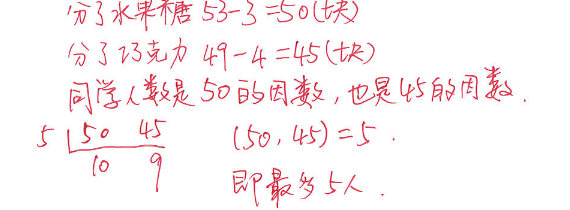 分了水果糖 53-3=50(块)
分了巧克力 49-4=45(块)
同学人数是50的因数,也是45的因数.
5 | 50 45 (50,45)=5.
10 9
即最多5人.